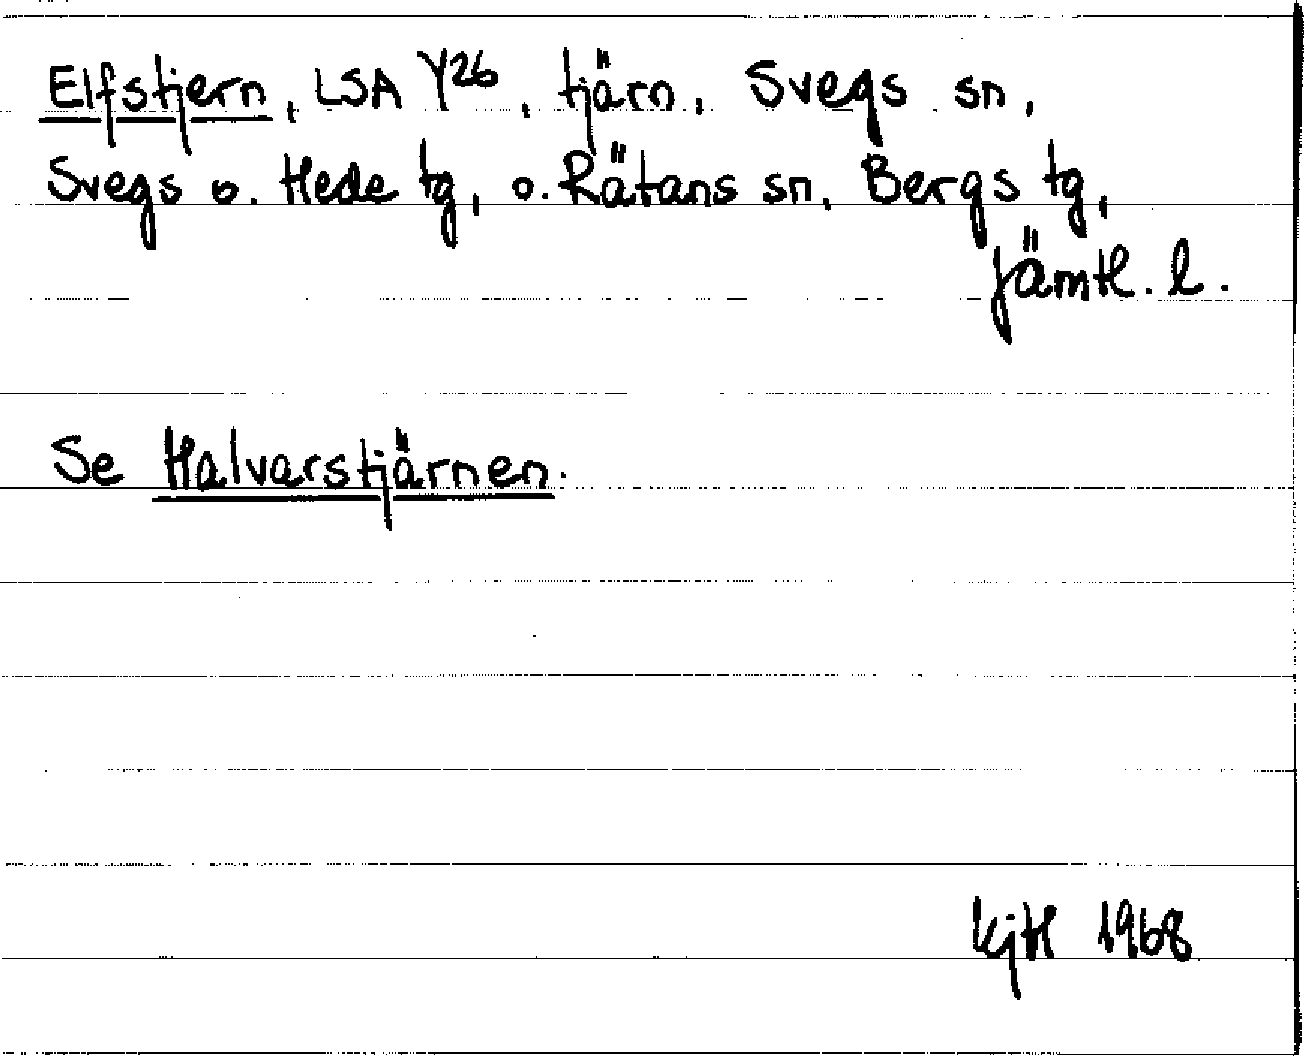 Elfstjern, LSA Y26, tjärn, Svegs sn,
Svegs o. Hede tg, o. Rätans sn, Bergs tg,
Jämtl. l.
Se Halvarstjärnen.
KjH 1968